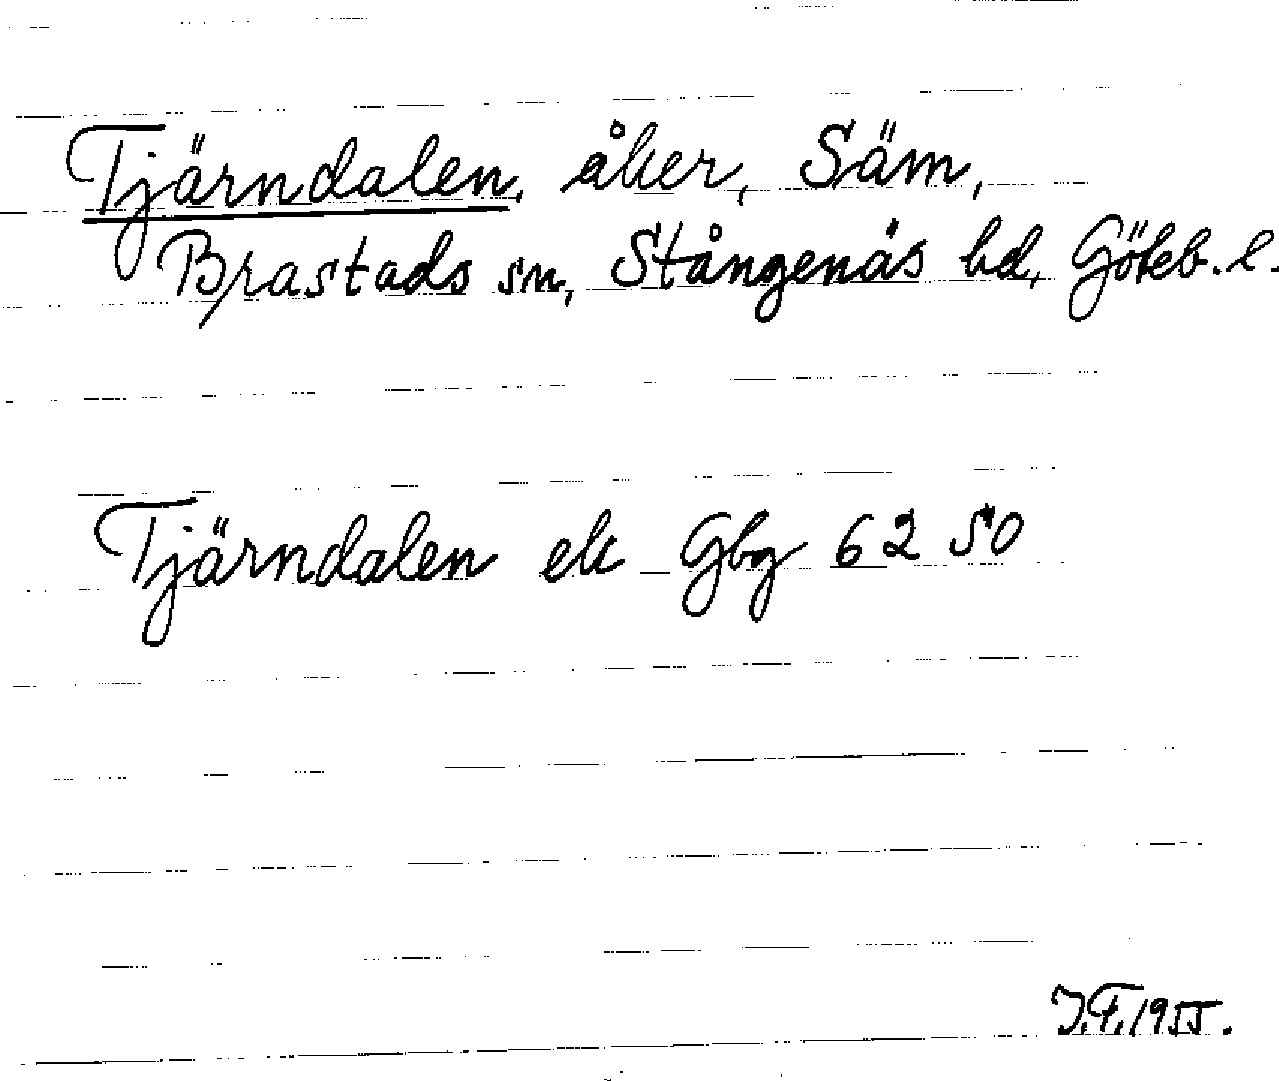 Tjärndalen, åker, Säm,
Brastads sn, Stångenäs hd, Göteb. l.
Tjärndalen ek Gbg 62 50
J.F. 1955.